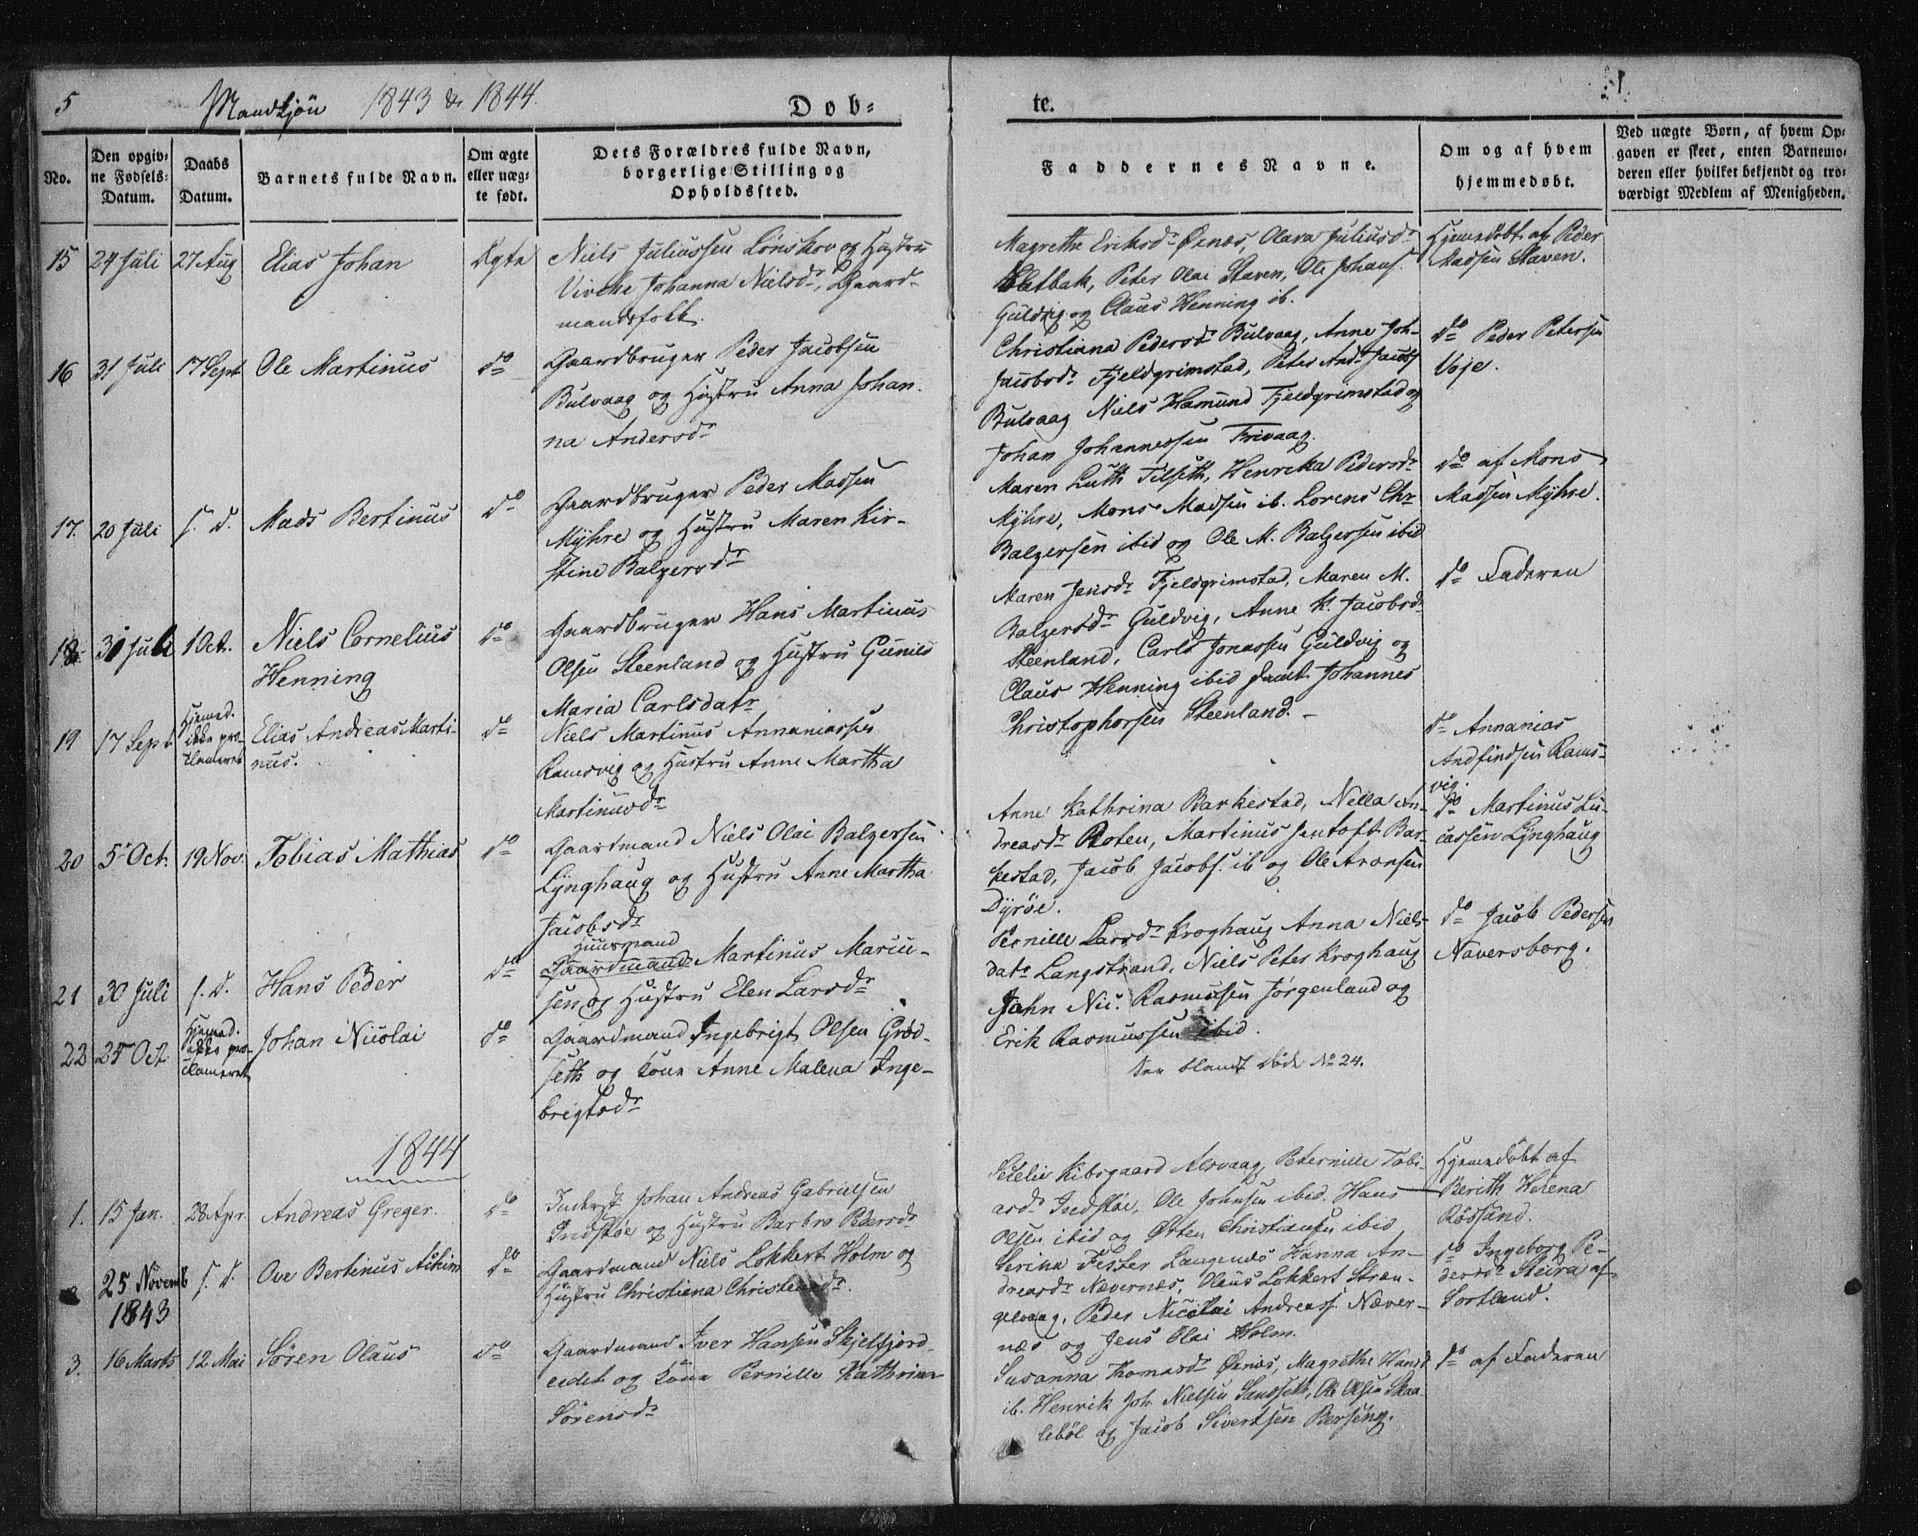 5
Mandkjön 1843 & 1844.
Døb-
te.
No.
Den opgiv-
ne Fødsels-
Datum.
Daabs
Datum.
Barnets fulde Navn.
Om ægte
eller uæg-
te født.
Dets Forældres fulde Navn,
borgerlige Stilling og
Opholdssted.
Faddernes Navne.
Om og af hvem
hjemmedøbt.
Ved uægte Børn, af hvem Op-
gaven er skeet, enten Barnemo-
deren eller hvilket bekjendt og tro-
værdigt Medlem af Menigheden.
15 24 Juli 27 Aug Elias Johan Ægte
Niels Juliussen Lönskov og Hustru
Viveke Johanna Nielsdr, Gaard-
mandsfolk.
Magrethe Eriksdr Örnes, Olava Juliusdr
Sletbak, Peter Olai Staven, Ole Johans.
Guldvig og Claus Henning ib.
Hjemmedöbt af Peder
Madsen Staven.
16 31 Juli 17 Sept Ole Martinus do
Gaardbruger Peder Jacobsen
Bulvaag og Hustru Anna Johan-
na Andersdr
Christiana Pedersdr Bulvaag, Anne Joh-
Jacobsdr Fjeldgrimstad, Peter Andr Jacobs
Bulvaag Niels Hamund Fjeldgrimstad og
Johan Johannessen Frivaag.
do Peder Petersen
Voje.
17. 20 Juli s. d. Mads Bertinus do
Gaardbruger Peder Madsen
Myhre og Hustru Maren Kir-
stine Balzersdr
Maren Luth Tilseth, Henrika Pedersdr
Myhre, Mons Madsen ib. Lorens Chr
Balzersen ibid og Ole M. Balzersen ibid
do af Mons
Madsen Myhre.
18 31 Juli 1 Oct. Niels Cornelius
Henning
do
Gaardbruger Hans Martinus
Olsen Steenland og Hustru Gunild
Maria Carlsdatr
Maren Jensdr Fjeldgrimstad, Maren M.
Balzersdr Guldvig, Anne K. Jacobsdr
Steenland, Carls Jonassen Guldvig og
Claus Henning ibid samt Johannes
Christophersen Steenland.
do Faderen
19 17 Sept Hjemed.
ikke pro-
clameret
Elias Andreas Marti-
nus.
do
Niels Martinus Annaniassen
Ramsvig og Hustru Anne Martha
Martinusdr
do Annanias
Andfindsen Rams-
vig.
20 5 Oct. 19 Nov. Tobias Mathias do
Gaardmand Niels Olai Balzersen
Lynghaug og Hustru Anne Martha
Jacobsdr
Anne Kathrina Barkestad, Nella An-
dreasdr Roten, Martinus Jentoft Bar-
kestad, Jacob Jacobs. ib og Ole Aronsen
Dyröe.
do Martinus Lu-
cassen Lynghaug
21 30 Juli s. d. Hans Peder do
Huusmand
Gaardmand Martinus Mariu-
sen og Hustru Elen Larsdr
Pernille Larsdr Kroghaug Anna Niels-
datr Langstrand, Niels Peter Kroghaug
John Nic. Rasmusen Jörgenland og
Erik Rasmussen ibid.
do Jacob Pedersen
Naversborg.
22 25 Oct. Hjemed.
ikke pro-
clameret
Johan Nicolai do
Gaardmand Ingebrigt Olsen Gröd-
seth og Kone Anne Malena Inge-
brigtsdr
See blandt döde No 24.
1844
1. 15 Jan. 28 Apr. Andreas Greger. do
Inderst Johan Andreas Gabrielsen
Indstöe og Hustru Barbro Pedersdr
Kibsgaard Alsvaag, Peternille Tobi-
asdr Indstöe, Ole Johnsen ibid. Hans
Olsen ibid og Otten Christiansen ibid
Hjemmedöbt af
Berith Helena
Rössand.
2 25 Novemb
1843
s. d. Ove Bertinus Achim do
Gaardmand Niels Lokkert Holm og
Hustru Christiana Christensdr.
Serina Fester Langenes Hanna An-
dreasdr Nævernæs, Olaus Lokkert Stran-
gelvaag, Peder Nicolai Andreass. Næver-
næs og Jens Olai Holm.
do Ingeborg Pe-
dersdr Steira af
Sortland.
3. 16 Marts 12 Mai Sören Olaus do
Gaardmand Iver Hansen Skjelfjord-
eidet og Kone Pernille Kathrine
Sörensdr
Susanna Thomasdr Örnes, Magrethe Hansd
ib. Henrik Joh Nielsen Sandseth, Ole Olsen Skaa-
leböl og Jacob Sivertsen Bersöng.
do af Faderen